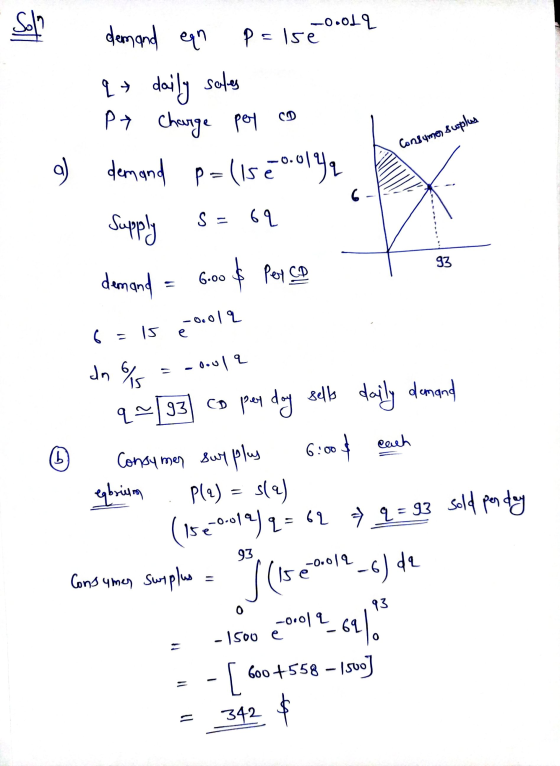 Solⁿ
demand eqn P = 15e^-0.01q
q → daily sales
P → charge per CD
a) demand p = (15 e^-0.01q)q
Supply S = 6q
Consumer surplus
6
93
demand = 6.00 $ Per CD
6 = 15 e^-0.01q
ln 6/15 = -0.01q
q ≃ 93 CD per day sells daily demand
b) Consumer surplus 6:00 $ each
eqbrium P(q) = s(q)
(15e^-0.01q) q = 6q ⇒ q = 93 sold per day
Consumer surplus = ∫₀^93 (15 e^-0.01q - 6) dq
= -1500 e^-0.01q - 6q |₀^93
= - [600 + 558 - 1500]
= 342 $